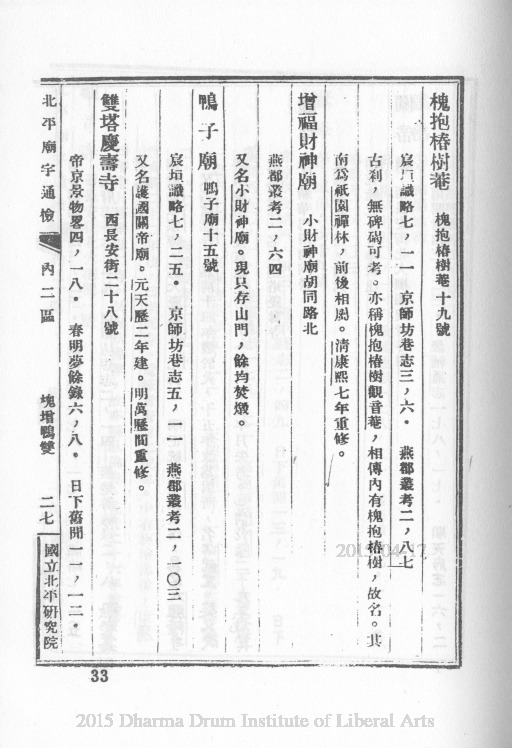 槐抱椿樹菴　槐抱椿樹菴十九號
宸垣識略七，一一　京師坊巷志三，六。　燕都叢考二，八七
古刹，無碑碣可考。亦稱槐抱椿樹觀音菴，相傳內有槐抱椿樹，故名。其
南爲祇園禪林，前後相屬。淸康熙七年重修。
增福財神廟　小財神廟胡同路北
燕都叢考二，六四
又名小財神廟。現只存山門，餘均焚燬。
鴨子廟　鴨子廟十五號
宸垣識略七，二五。　京師坊巷志五，一一　燕都叢考二，一〇三
又名護國關帝廟。元天歷二年建。明萬歷間重修。
雙塔慶壽寺　西長安街二十八號
帝京景物畧四，一八。　春明夢餘錄六，八。　日下舊聞一一，一二。
北平廟宇通檢　內二區　槐增鴨雙　二七　國立北平研究院
33
2015-04-17
2015 Dharma Drum Institute of Liberal Arts